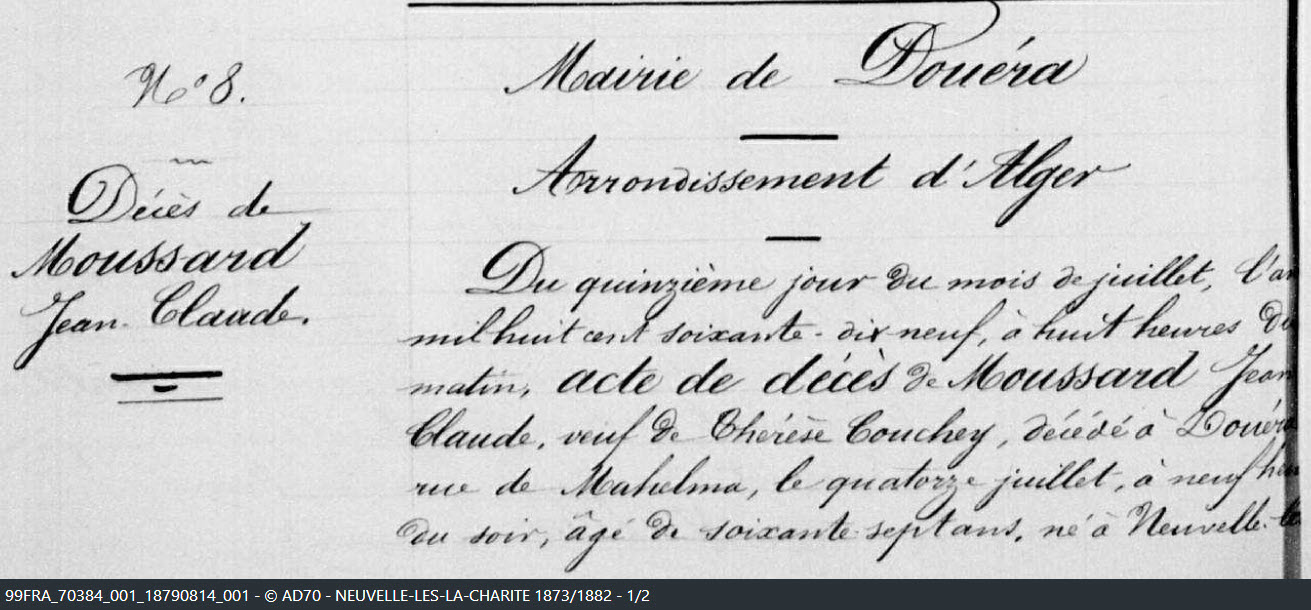 N° 8.
Décès de
Moussard
Jean Claude.
Mairie de Douéra
Arrondissement d'Alger
Du quinzième jour du mois de juillet, l'an
mil huit cent soixante-dix neuf, à huit heures du
matin, acte de décès de Moussard Jean
Claude, veuf de Thérèse Couchey, décédé à Douéra
rue de Mahelma, le quatorze juillet, à neuf heu
du soir, âgé de soixante sept ans, né à Neuvelle-les
99FRA_70384_001_18790814_001 - © AD70 - NEUVELLE-LES-LA-CHARITE 1873/1882 - 1/2